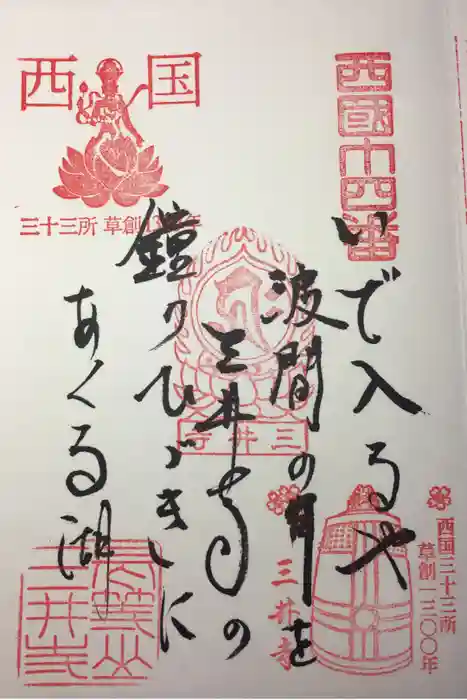 西国十四番
いで入るや
波間の月を
三井寺の
鐘のひゞきに
あくる湖
西国
三十三所 草創1300年
三井寺
三井寺
西国三十三所
草創一三〇〇年